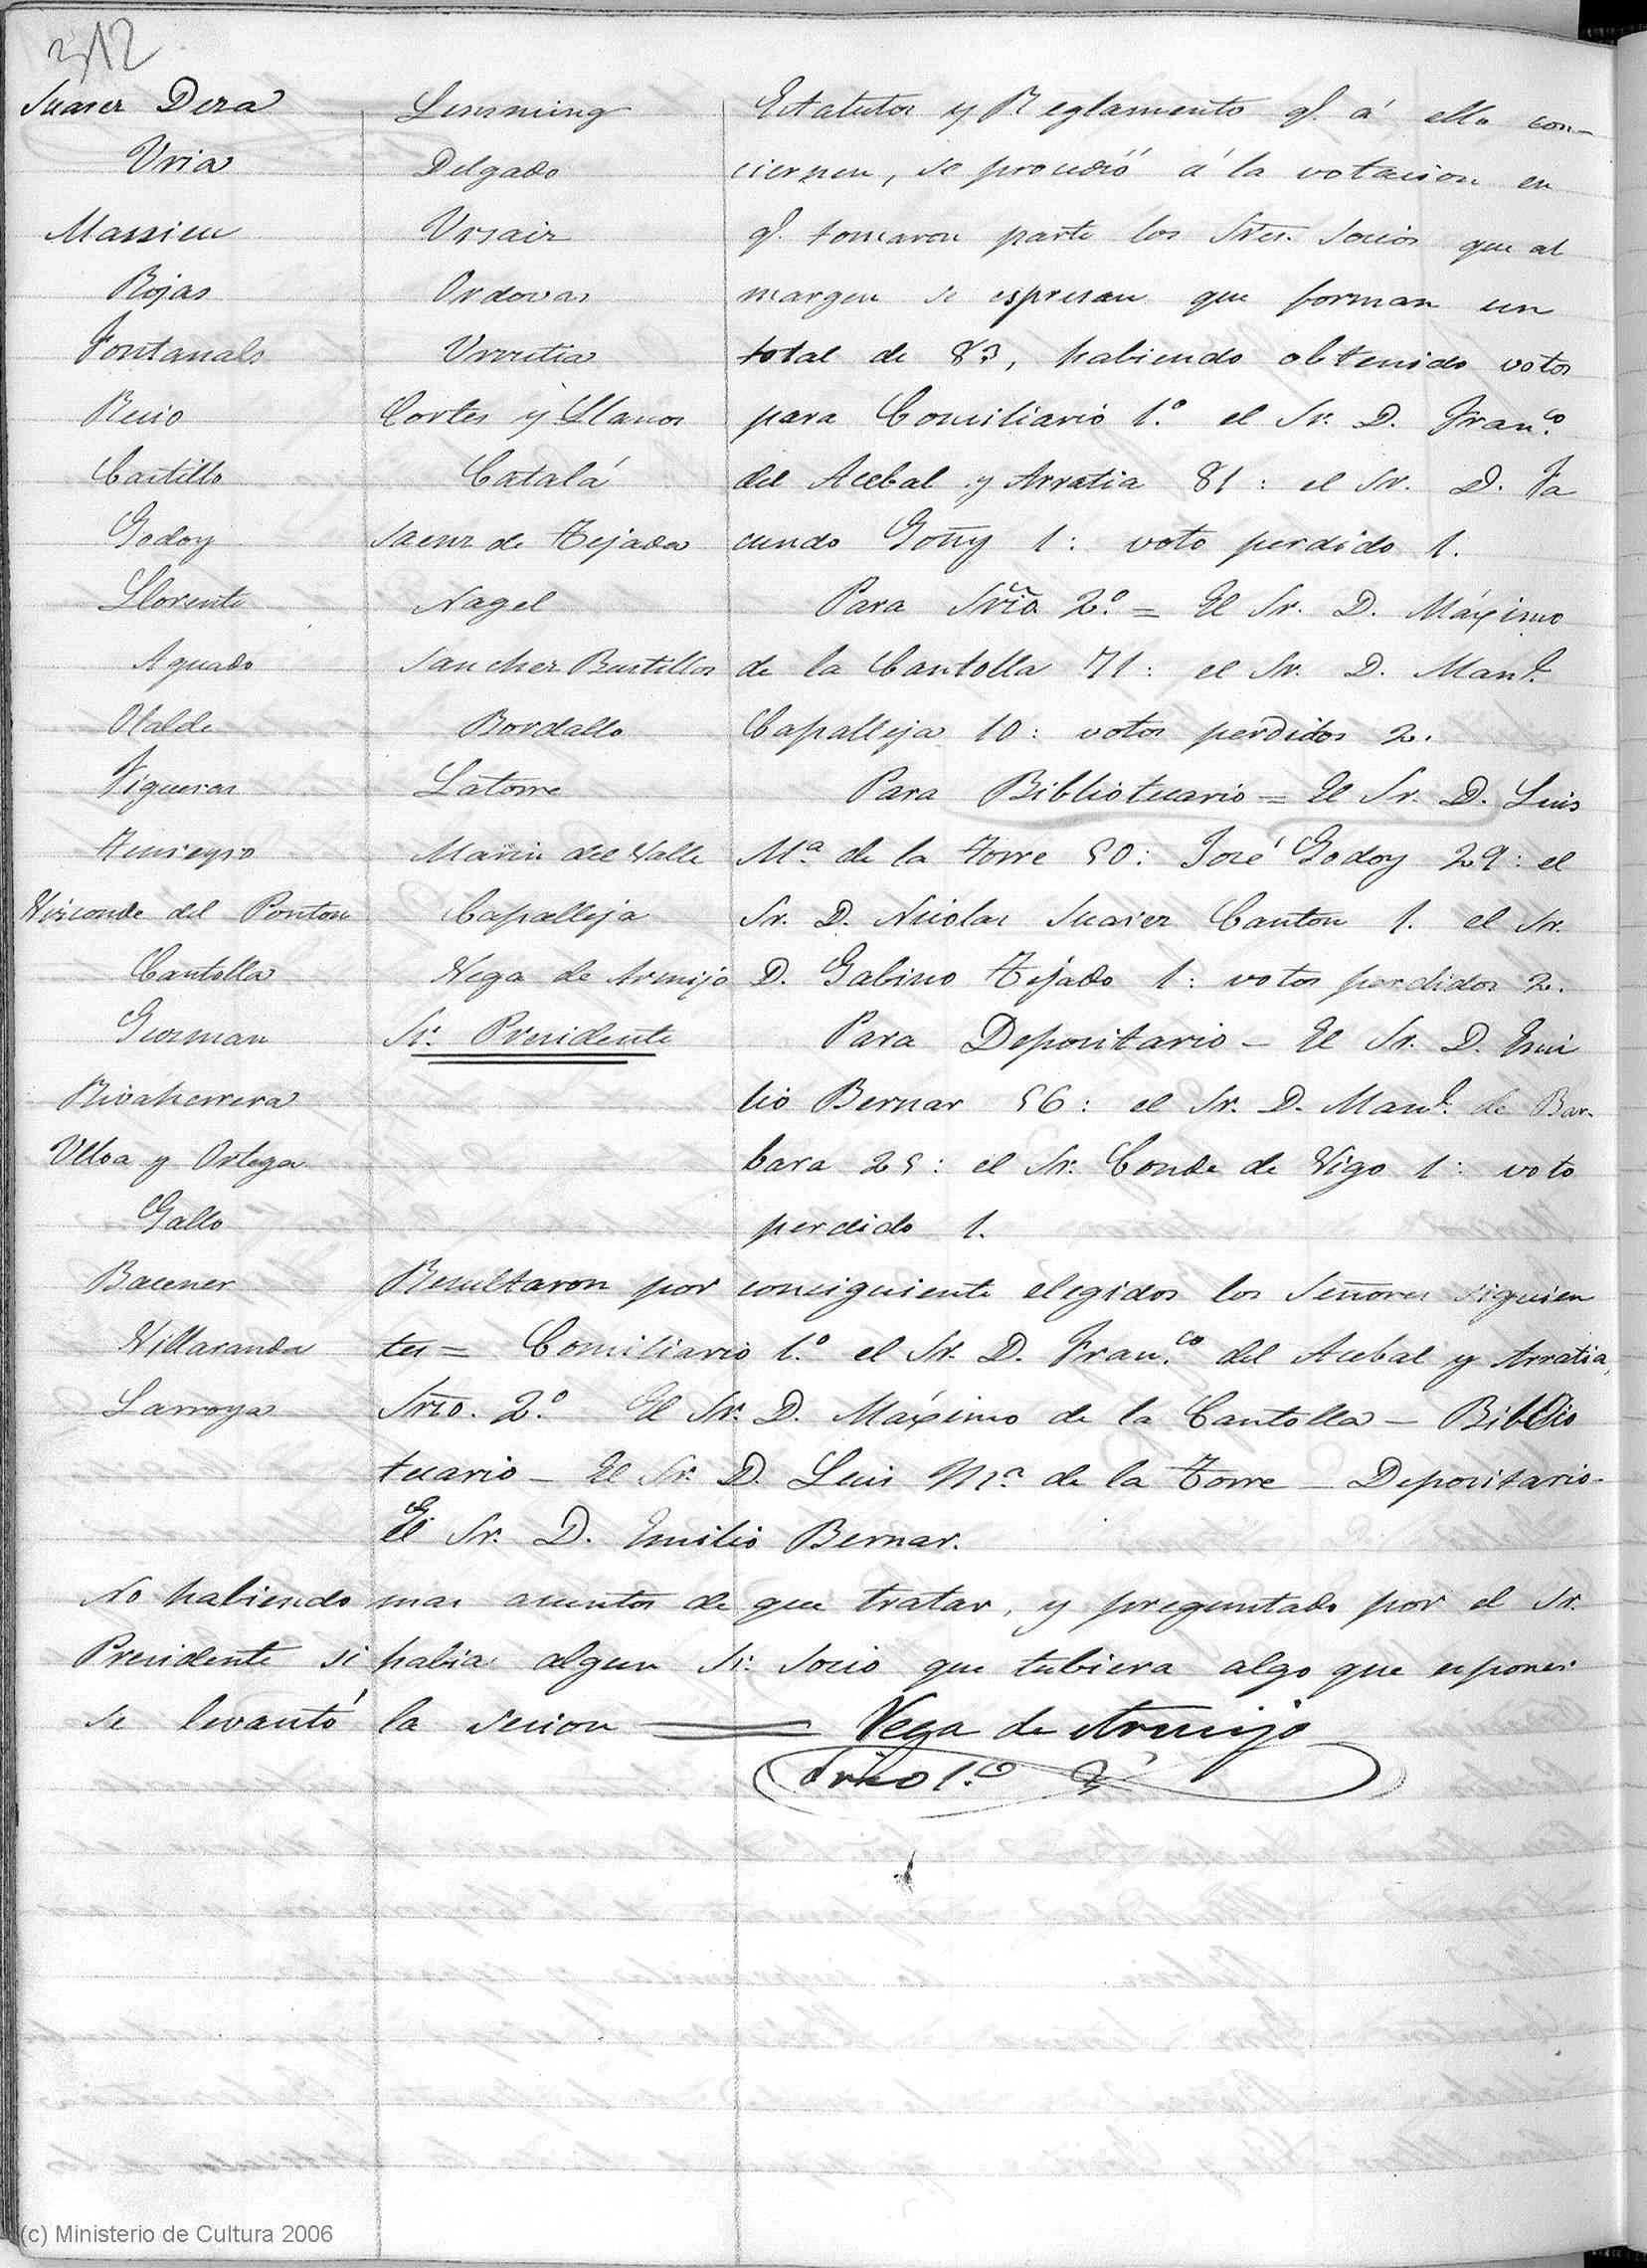 312
Suarez Deza
Uria
Massieu
Rojas
Fontanals
Recio
Castillo
Godoy
Llorente
Aguado
Olalde
Figueras
Visconde del Ponton
Cantolla
Guzman
Rivaherrera
Ulloa y Ortega
Gallo
Bacener
Villaranda
Larroya
Lensming
Delgado
Ursaiz
Ordovas
Urrutia
Cortes y Llanos
Catalá
Saenz de Tejada
Nagel
Sanchez Bustillos
Bordallo
Latorre
Marin del Valle
Capalleja
Vega de Armijo
Sr. Presidente
Estatutos y Reglamento q.e á ello con-
ciernen, se procedió á la votacion en
q.e tomaron parte los Sres. Socios que al
margen se espresan que forman un
total de 83, habiendo obtenido votos
para Conciliario 1.º el Sr. D. Fran.co
del Acebal y Arratia 81: el Sr. D. Fa
cundo Goñy 1: voto perdido 1.
Para Srio. 2.º = El Sr. D. Máximo
de la Cantolla 71: el Sr. D. Man.l
Capalleja 10: votos perdidos 2.
Para Bibliotecario = El Sr. D. Luis
M.a de la Torre 50: José Godoy 29: el
Sr. D. Nicolas Suarez Canton 1. el Sr.
D. Gabino Tejado 1: votos perdidos 2.
Para Depositario - El Sr. D. Emi
lio Bernar 56: el Sr. D. Man.l de Bar-
bara 25: el Sr. Conde de Vigo 1: voto
perdido 1.
Resultaron por consiguiente elegidos los Señores siguien
tes = Conciliario 1.º el Sr. D. Fran.co del Acebal y Arratia,
Srio. 2.º El Sr. D. Máximo de la Cantolla - Biblio
tecario - El Sr. D. Luis M.a de la Torre - Depositario -
El Sr. D. Emilio Bernar.
No habiendo mas asuntos de que tratar, y preguntado por el Sr.
Presidente si habia algun Sr. Socio que tubiera algo que esponer
se levantó la sesion
Vega de Armijo
Srio 1.º
(c) Ministerio de Cultura 2006